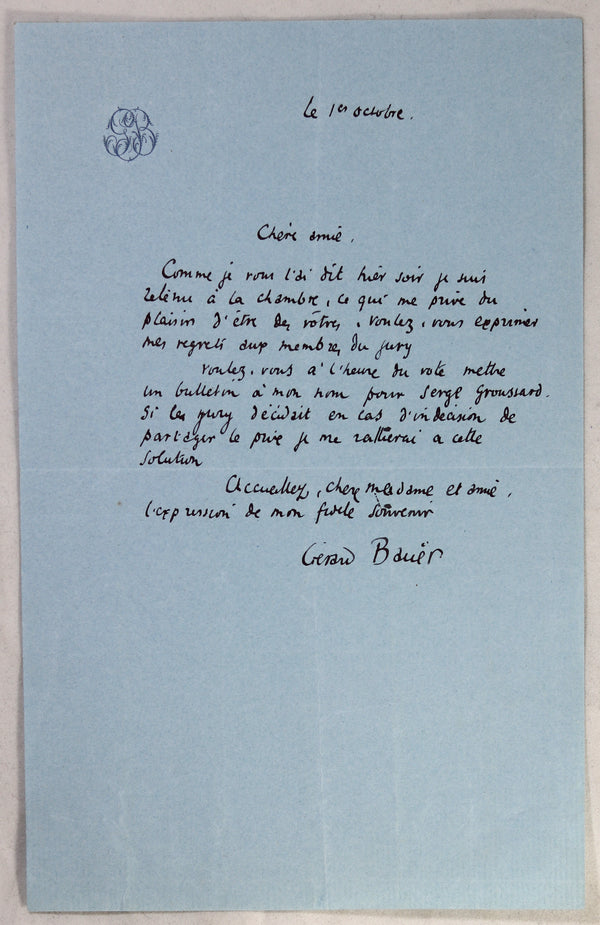 GB
Le 1er octobre.
Chère amie,
Comme je vous l'ai dit hier soir je suis
retenu à la chambre, ce qui me prive du
plaisir d'être des vôtres. Voulez-vous exprimer
mes regrets aux membres du jury
Voulez-vous à l'heure du vote mettre
un bulletin à mon nom pour Serge Groussard.
Si le jury décidait en cas d'indécision de
partager le prix je me rallierai a cette
solution
Accueillez, chère madame et amie,
l'expression de mon fidèle souvenir
Gérard Bauër